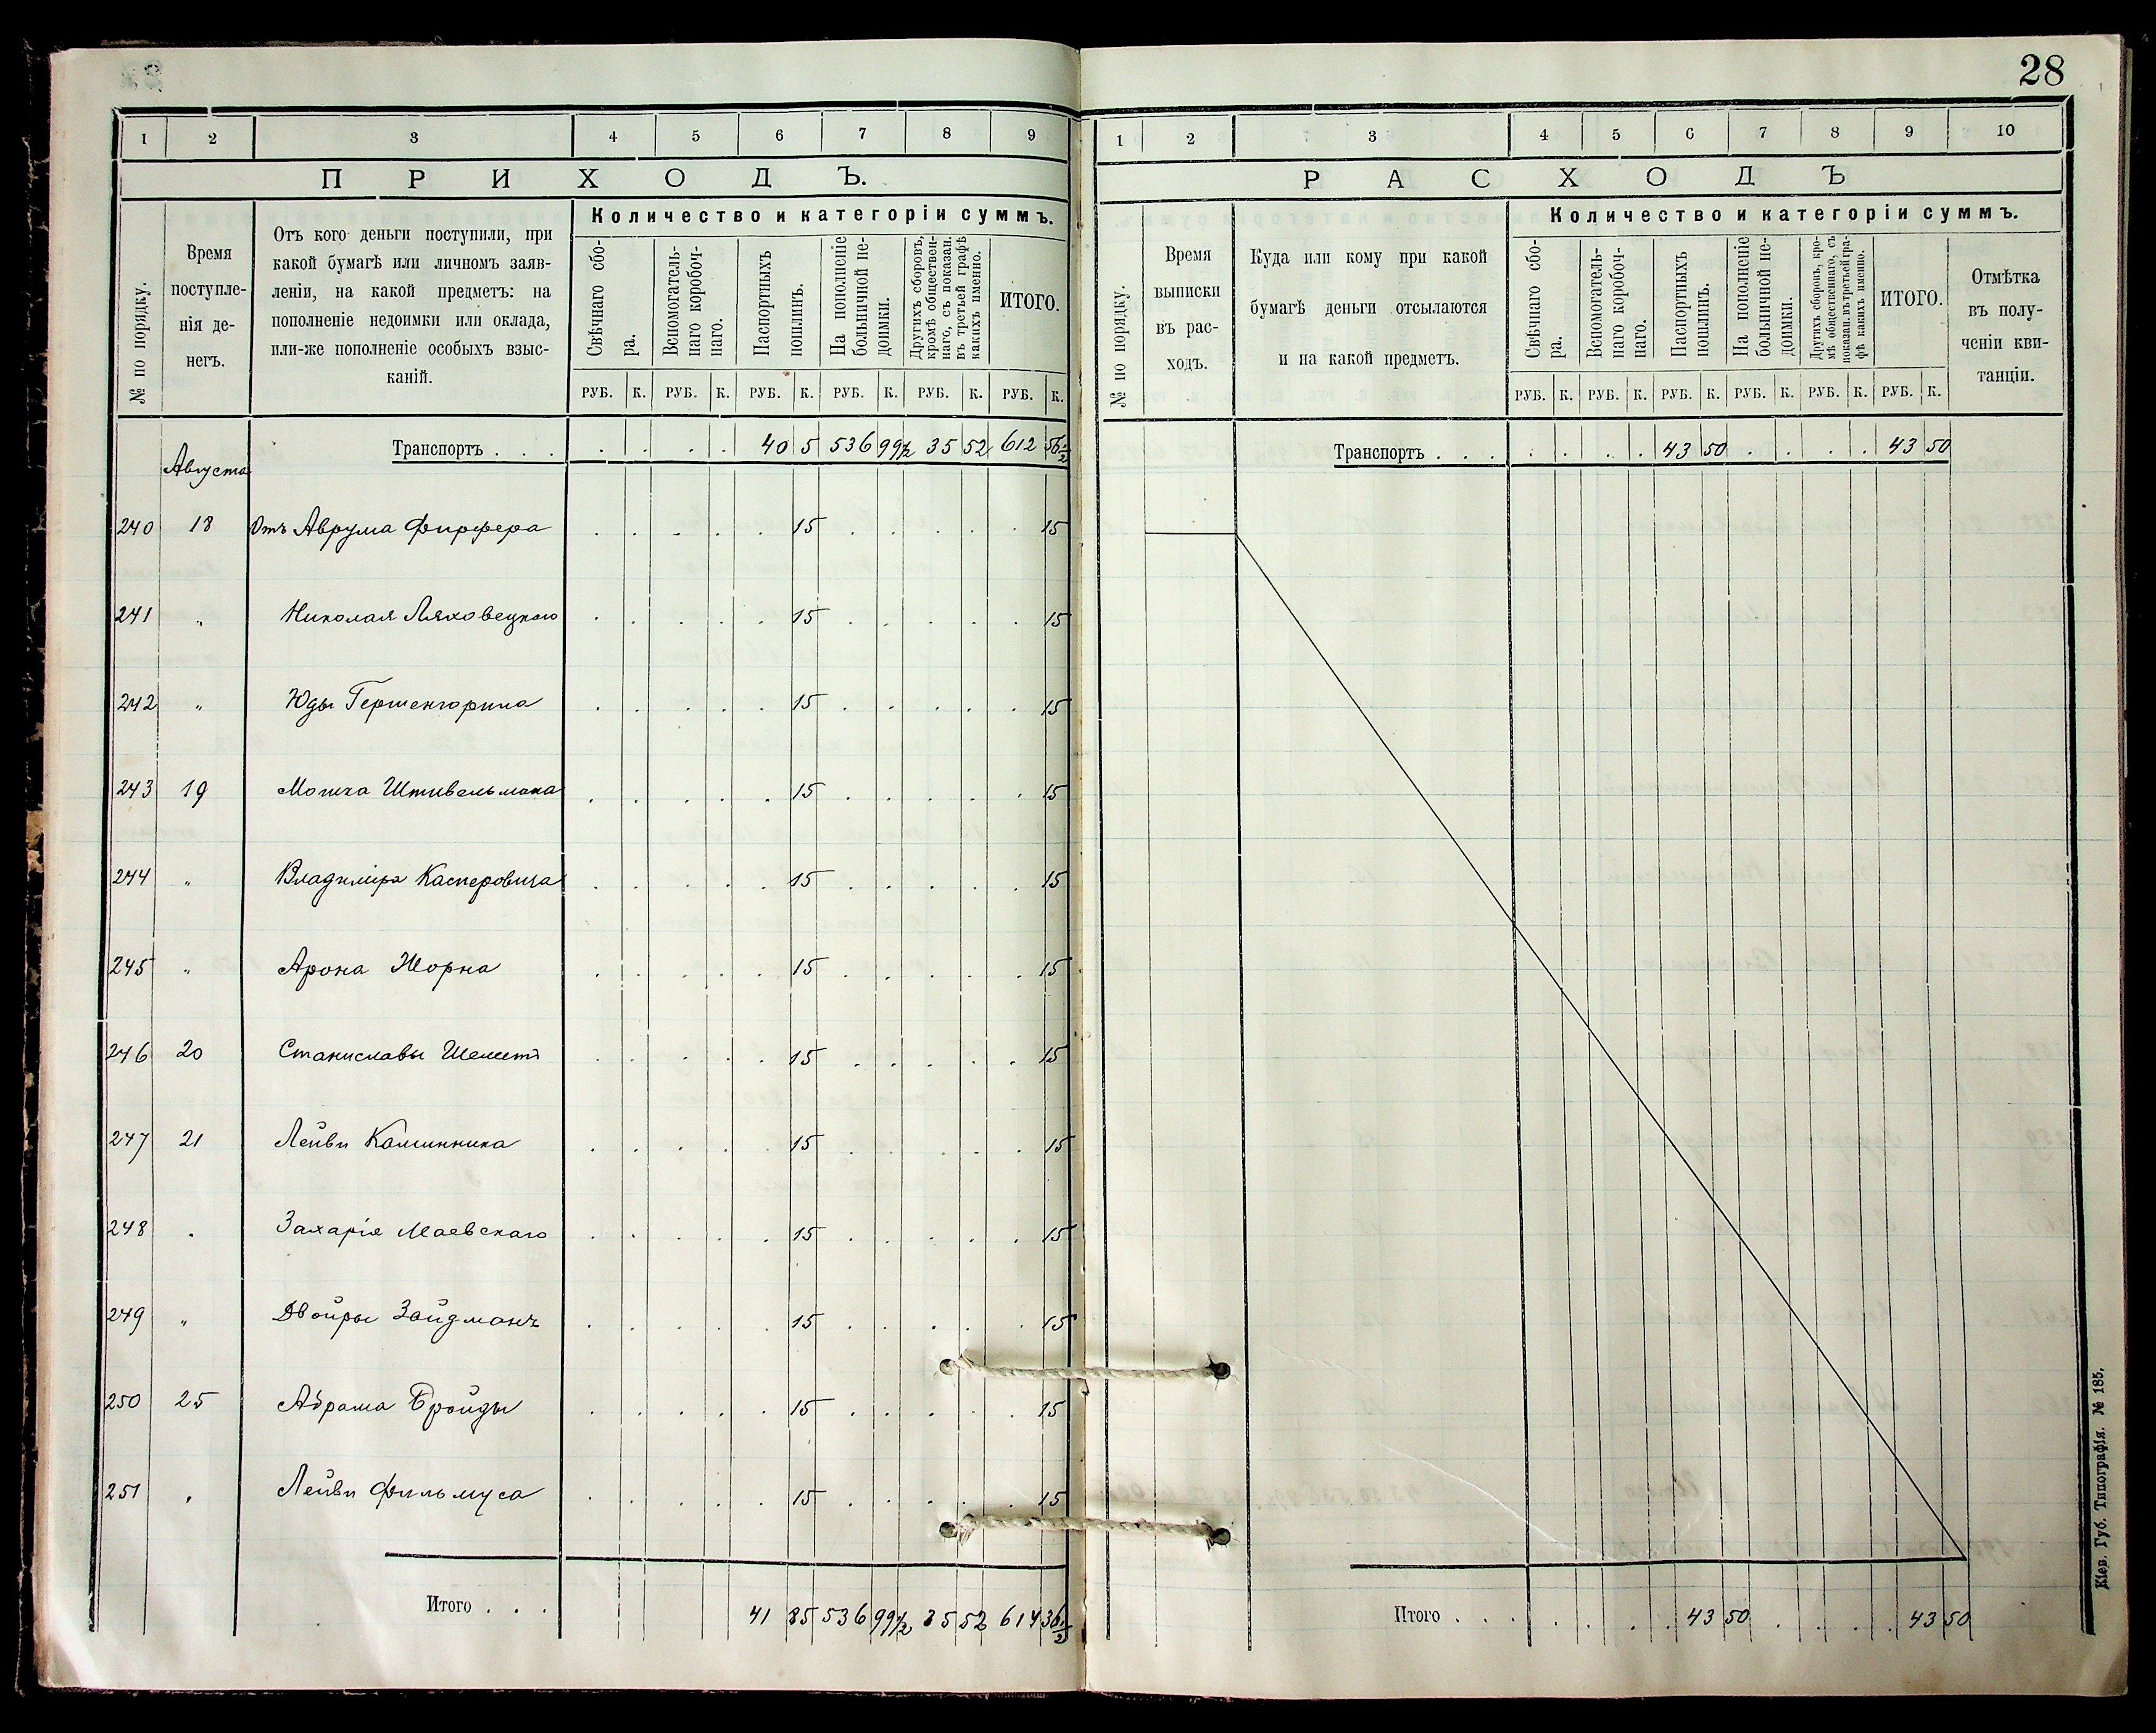 28
1 2 3 4 5 6 7 8 9
ПРИХОДЪ.
№ по порядку.
Время
поступле-
нія де-
негъ.
Отъ кого деньги поступили, при
какой бумагѣ или личномъ заяв-
леніи, на какой предметъ: на
пополненіе недоимки или оклада,
или-же пополненіе особыхъ взыс-
каній.
Количество и категоріи суммъ.
Свѣчнаго сбо-
ра.
Вспомогатель-
наго коробоч-
наго.
Паспортныхъ
пошлинъ.
На пополненіе
больничной не-
доимки.
Другихъ сборовъ,
кромѣ обществен-
наго, съ показан.
въ третьей графѣ
какихъ именно.
ИТОГО.
РУБ. К. РУБ. К. РУБ. К. РУБ. К. РУБ. К. РУБ. К.
Транспортъ . . . . . . . 40 5 536 99½ 35 52 612 56½
Августа
240 18 Отъ Аврума Фирфера . . . . . 15 . . . . . 15
241 „ Николая Ляховецкаго . . . . . 15 . . . . . 15
242 „ Юды Гершенгорина . . . . . 15 . . . . . 15
243 19 Мошка Штивельмана . . . . . 15 . . . . . 15
244 „ Владиміра Касперовича . . . . . 15 . . . . . 15
245 „ Арона Жорна . . . . . 15 . . . . . 15
246 20 Станиславы . . . . . 15 . . . . . 15
247 21 Лейви Каминника . . . . . 15 . . . . . 15
248 „ Захарія Маевскаго . . . . . 15 . . . . . 15
249 „ Двойры Зайдманъ . . . . . 15 . . . . . 15
250 25 Абрама Бройды . . . . . 15 . . . . . 15
251 „ Лейви Фильмуса . . . . . 15 . . . . . 15
Итого . . . 41 85 536 99½ 35 52 614 36½
1 2 3 4 5 6 7 8 9 10
РАСХОДЪ
№ по порядку.
Время
выписки
въ рас-
ходъ.
Куда или кому при какой
бумагѣ деньги отсылаются
и на какой предметъ.
Количество и категоріи суммъ.
Свѣчнаго сбо-
ра.
Вспомогатель-
наго коробоч-
наго.
Паспортныхъ
пошлинъ.
На пополненіе
больничной не-
доимки.
Другихъ сборовъ, кро-
мѣ общественнаго, съ
показан. въ третьей гра-
фѣ какихъ именно.
ИТОГО.
Отмѣтка
въ полу-
ченіи кви-
танціи.
РУБ. К. РУБ. К. РУБ. К. РУБ. К. РУБ. К. РУБ. К.
Транспортъ . . . . . . . 43 50 . . . . 43 50
Итого . . . . . . . 43 50 . . . . 43 50
Кіев. Губ. Типографія. № 185.